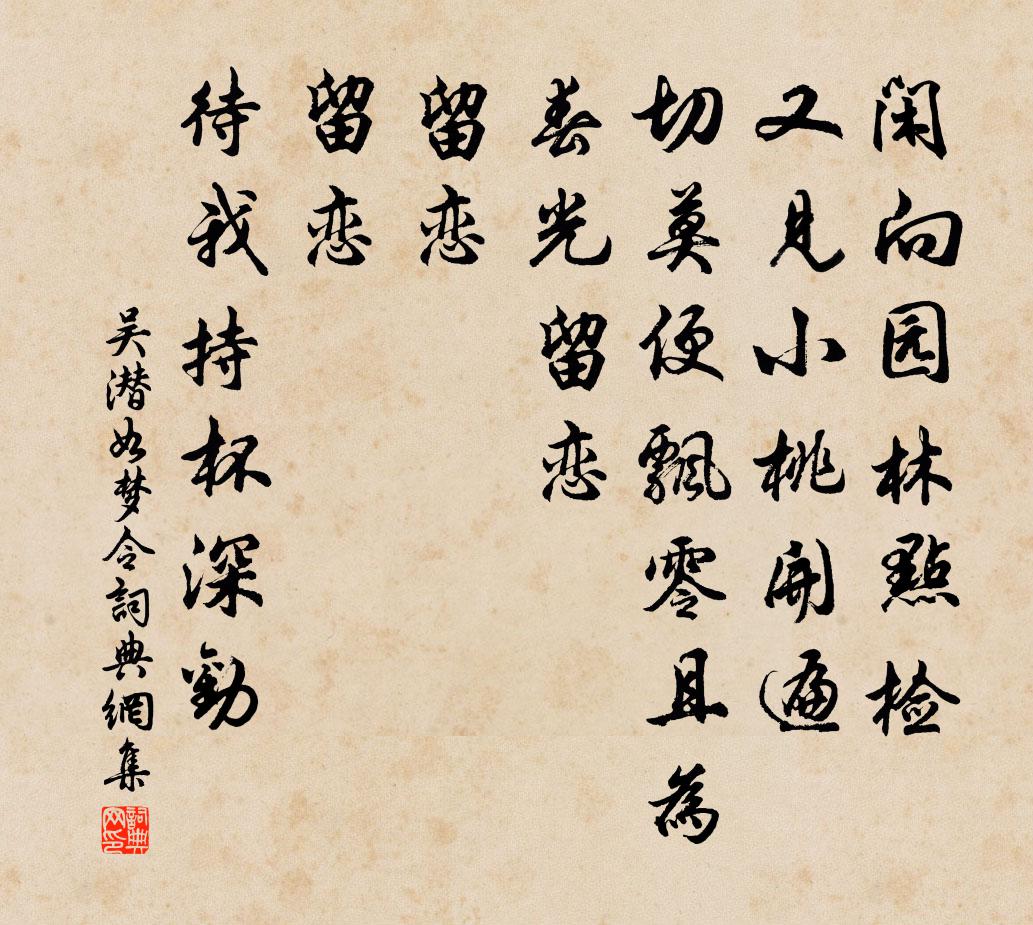 闲向园林點检
又见小桃開遍
切莫便飄零且為
春光留恋
留恋
留恋
待我持杯深勸
吴潜如梦令詞典網集
詞典网印